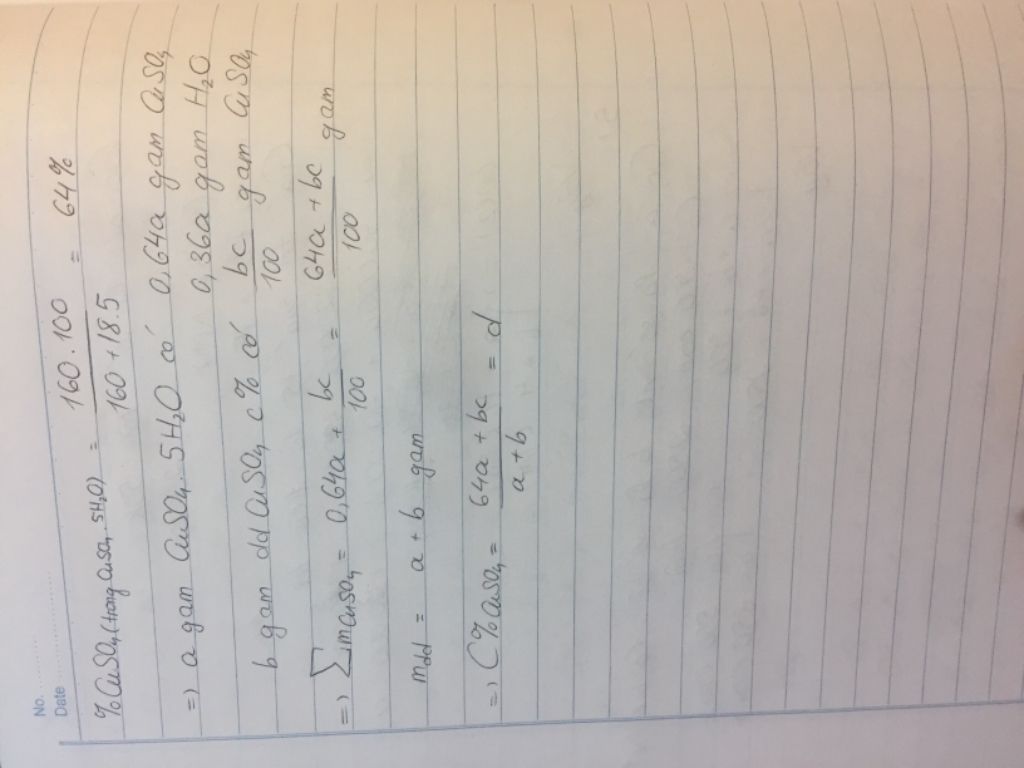 No.
Date
% CuSO4 (trong CuSO4.5H2O) = 160.100 / 160+18.5 = 64%
=) a gam CuSO4.5H2O có 0,64a gam CuSO4
0,36a gam H2O
b gam dd CuSO4 c% có bc/100 gam CuSO4
=) ∑mCuSO4 = 0,64a + bc/100 = 64a + bc / 100 gam
mdd = a + b gam
=) C% CuSO4 = 64a + bc / a+b = d